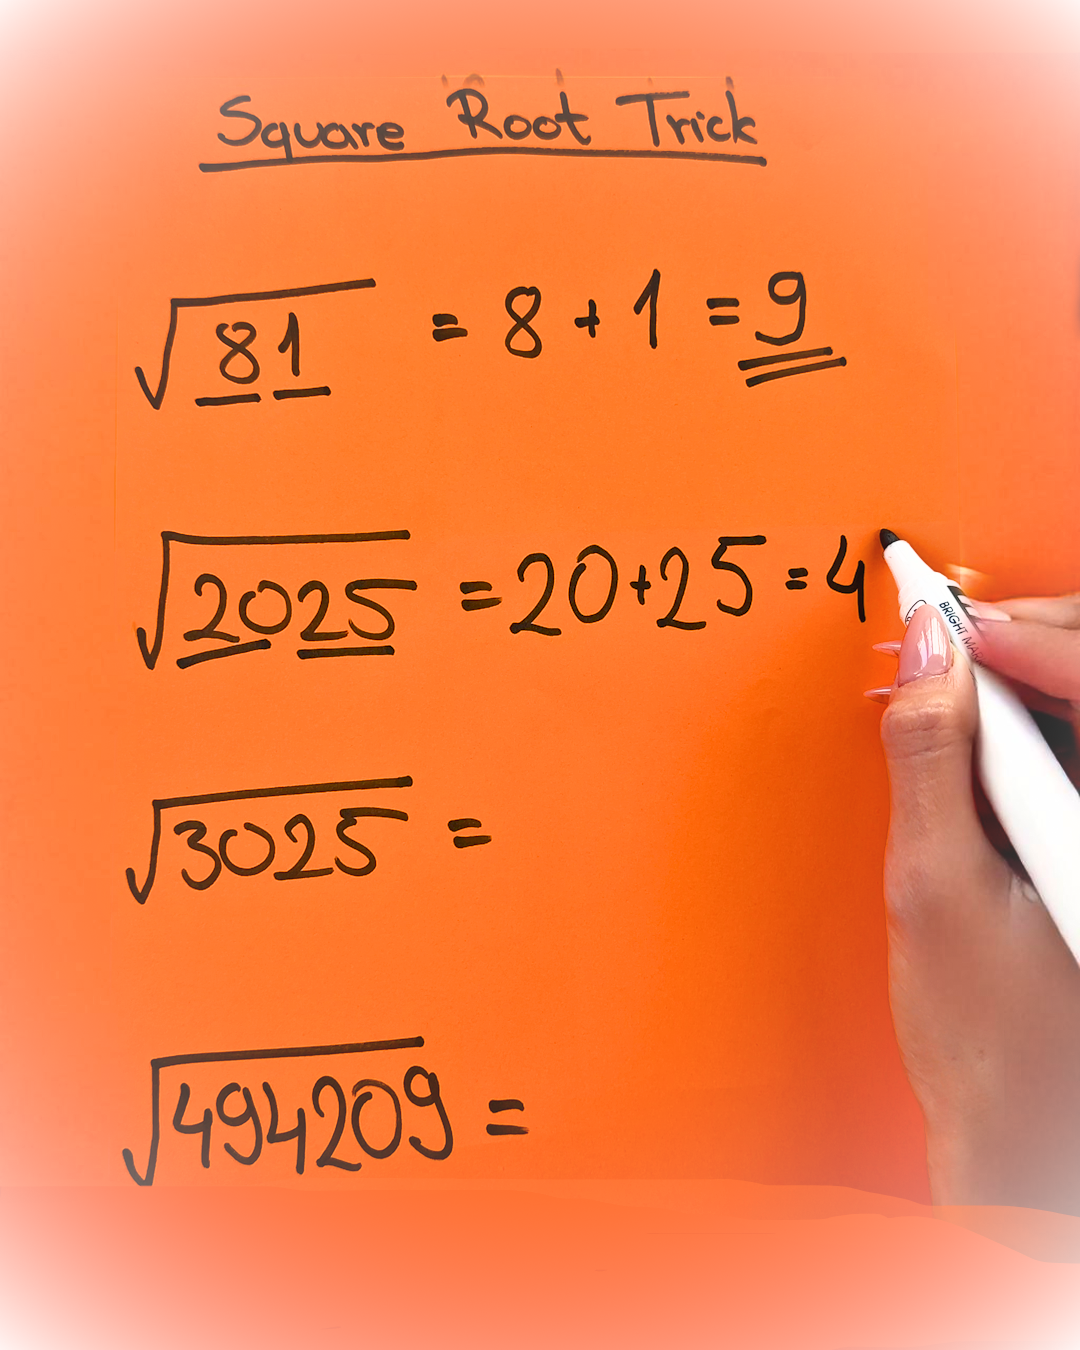 Square Root Trick
√81 = 8 + 1 = 9
√2025 = 20 + 25 = 4
√3025 =
√494209 =
BRIGHT MAR